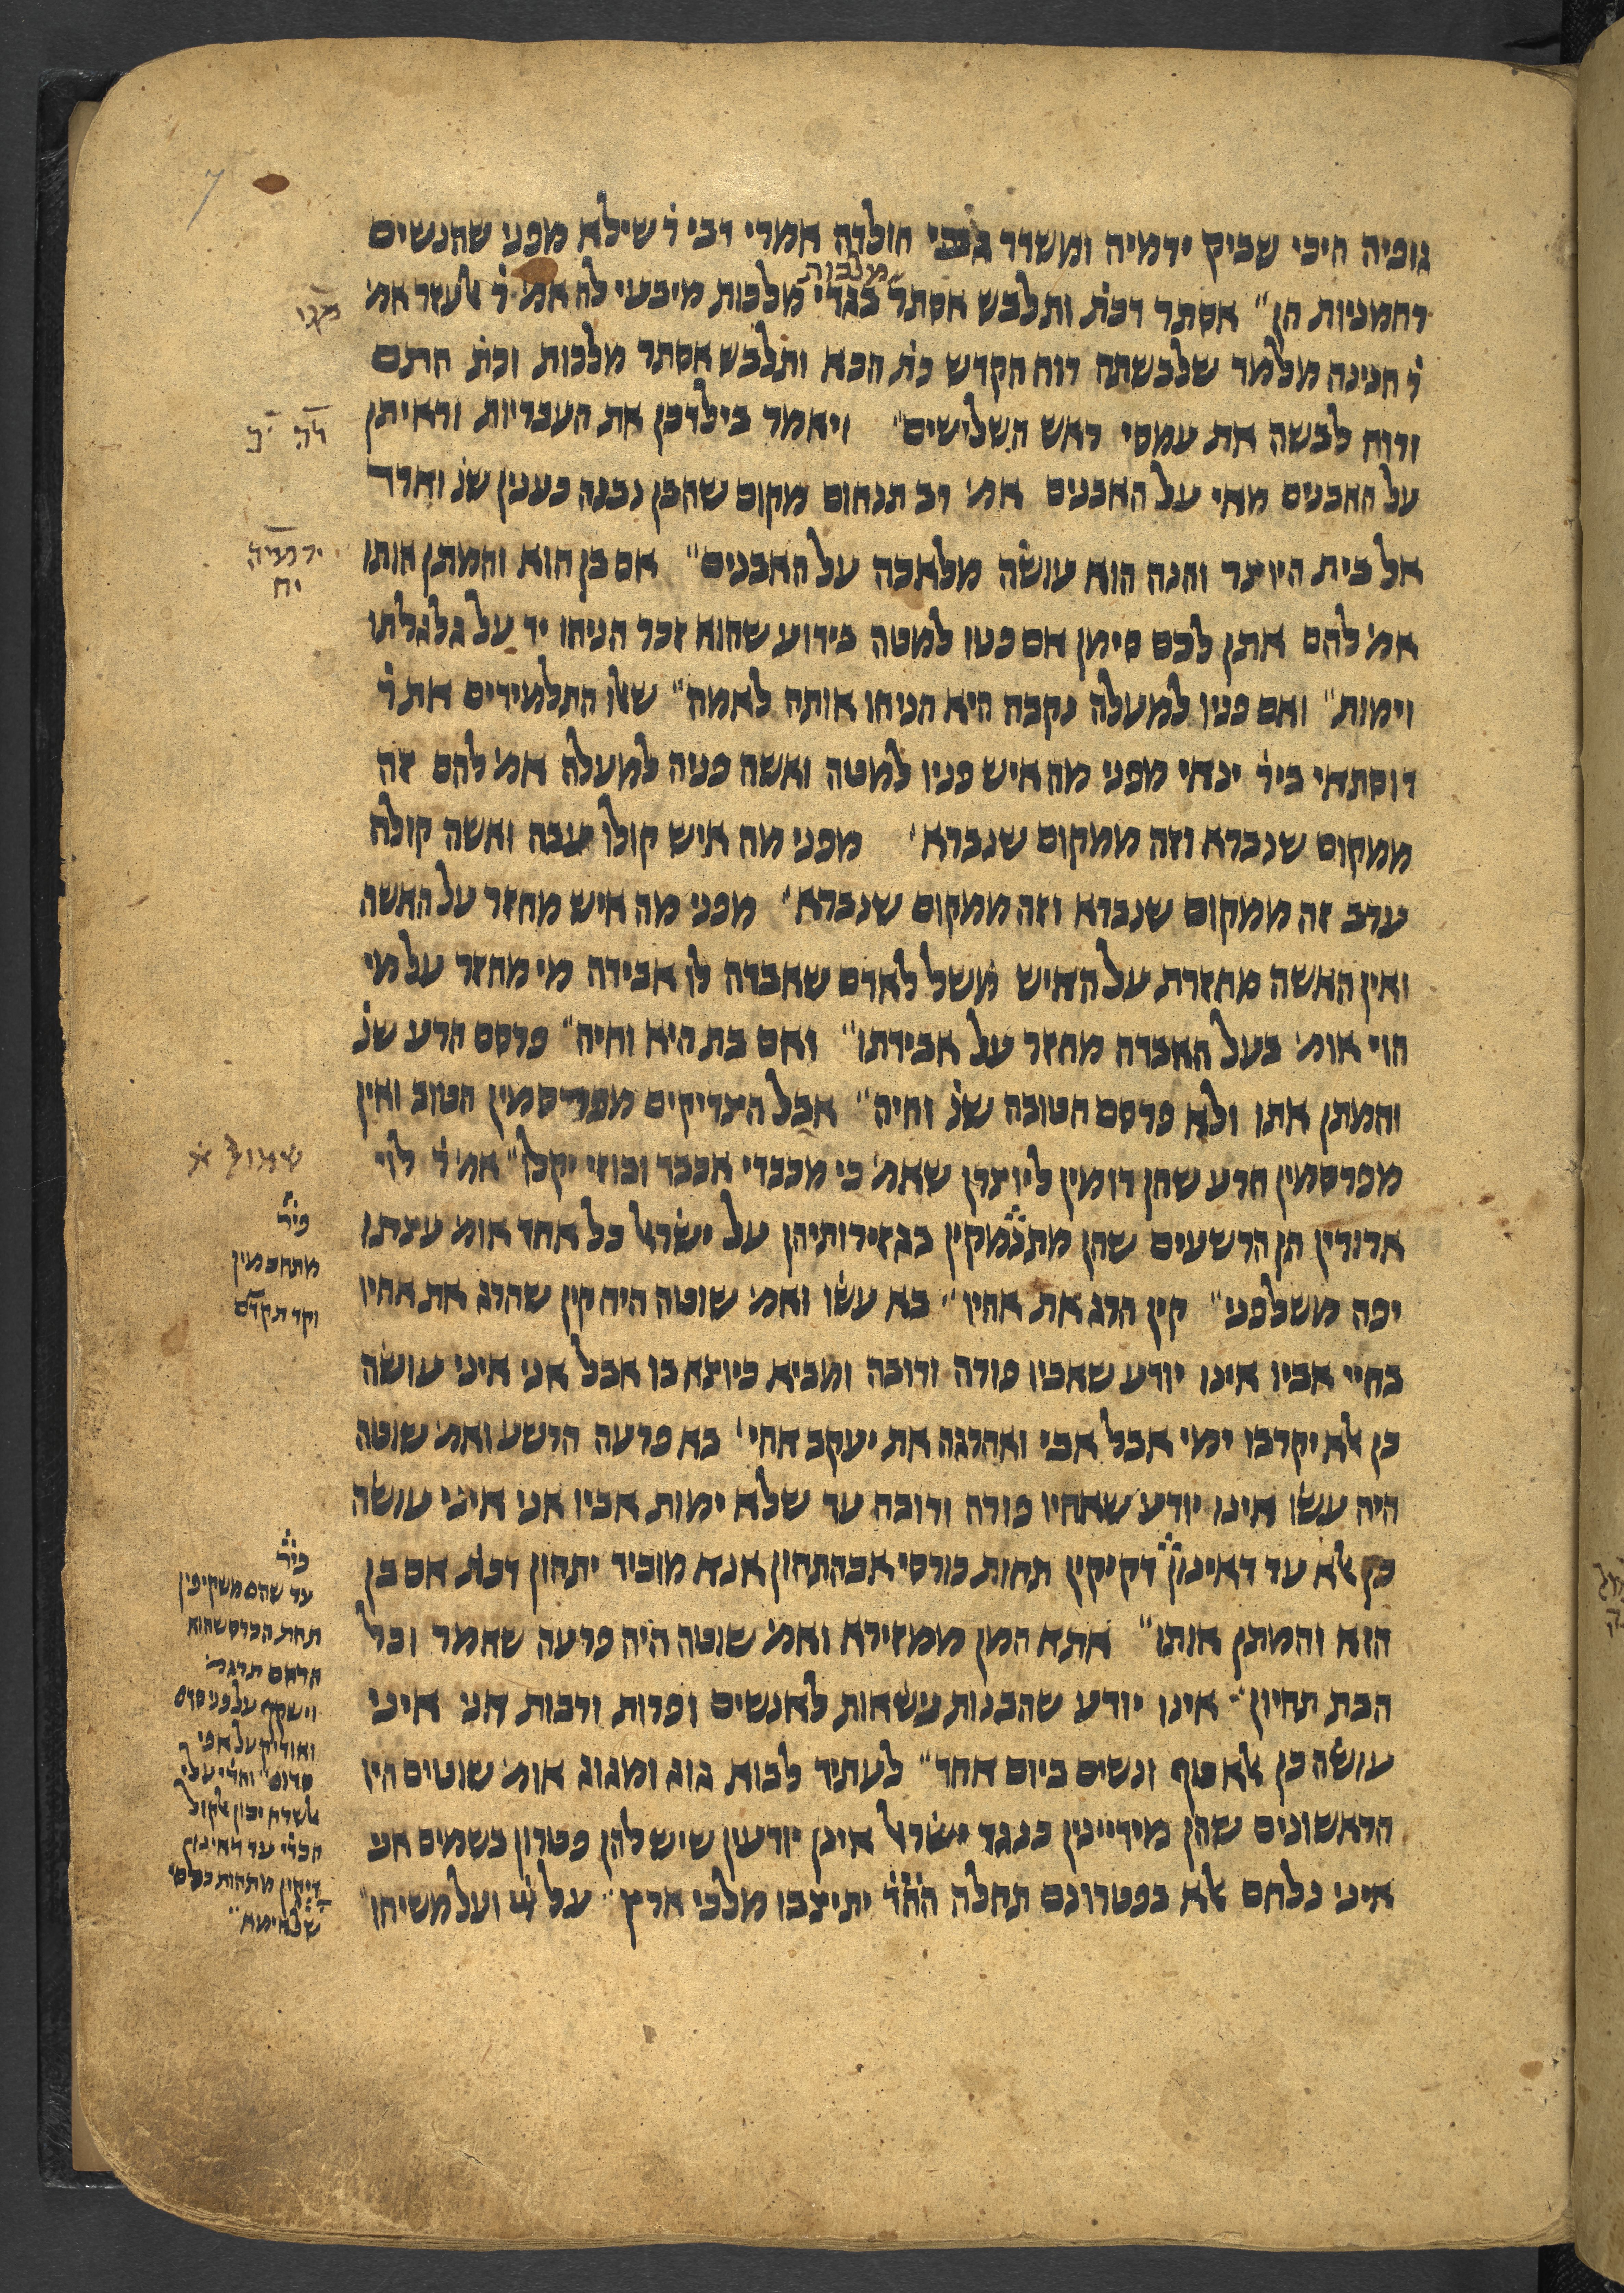 גופיה היכי שביק ירמיה ומשדר גבי חולדה אמרי דבי ר׳ שילא מפני שהנשים
מלבות
רחמניות הן״ אסתר דכת׳ ותלבש אסתר בגדי מלכות מיבעי לה אמ׳ ר׳ אלעזר אמ׳
ר׳ חנינה מלמד שלבשתה רוח הקדש כת׳ הכא ותלבש אסתר מלכות וכת׳ התם
ורוח לבשה את עמסי ראש השלישים״ ויאמר בילדכן את העבריות וראיתן
על האבנים מאי על האבנים אמ׳ רב תנחום מקום שהבן נבנה כענין שנ׳ וארד
אל בית היוצר והנה הוא עושה מלאכה על האבנים״ אם בן הוא והמתן אותו
אמ׳ להם אתן לכם סימן אם פניו למטה בידוע שהוא זכר הניחו יד על גלגלתו
וימות״ ואם פניו למעלה נקבה היא הניחו אותה לאמה״ שאלו התלמידים את ר׳
דוסתאי ביר׳ ינאי מפני מה איש פניו למטה ואשה פניה למעלה אמ׳ להם זה
ממקום שנברא וזה ממקום שנברא׳ מפני מה איש קולו עבה ואשה קולה
ערב זה ממקום שנברא וזה ממקום שנברא׳ מפני מה איש מחזר על האשה
ואין האשה מחזרת על האיש משל לאדם שאבדה לו אבידה מי מחזר על מי
הוי אומ׳ בעל האבדה מחזר על אבידתו״ ואם בת היא וחיה״ פרסם הרע שנ׳
והמתן אתו ולא פרסם הטובה שנ׳ וחיה״ אבל הצדיקים מפרסמין הטוב ואין
מפרסמין הרע שהן דומין ליוצרן שאמ׳ כי מכבדי אכבד ובוזי יקלו״ אמ׳ ר׳ לוי
ארורין הן הרשעים שהן מתנמקין בגזירותיהן על ישראל כל אחד אומ׳ עצתו
יפה משלפני״ קין הרג את אחיו״ בא עשו ואמ׳ שוטה היה קין שהרג את אחיו
בחיי אביו אינו יודע שאביו פורה ורובה ומביא כיוצא בו אבל אני איני עושה
כן אלא יקרבו ימי אבל אבי ואהרגה את יעקב אחי׳ בא פרעה הרשע ואמ׳ שוטה
היה עשו אינו יודע שאחיו פורה ורובה עד שלא ימות אביו אני איני עושה
כן אלא עד דאינון דקיקין תחות כורסי אבהתהון אנא מוביד יתהון דכת׳ אם בן
הוא והמתן אותו״ אתא המן ממזירא ואמ׳ שוטה היה פרעה שאמר וכל
הבת תחיון״ אינו יודע שהבנות נישאות לאנשים ופרות ורבות אני איני
עושה כן אלא טף ונשים ביום אחד״ לעתיד לבוא גוג ומגוג אומ׳ שוטים היו
הראשונים שהן מידיינין כנגד ישראל אינן יודעין שיש להן פטרון בשמים אני
איני נלחם אלא בפטרונם תחלה הה״ד יתיצבו מלכי ארץ״ על ה׳ ועל משיחו״
דה״ י״ב
ירמיה
יח
שמואל א׳
פיר׳
מתחכמין
וקד תקדם
פיר׳
עד שהם משקיפין
תחת הכרס שהוא
וישקף על פני סדם
ואודיק על אפי
סדום